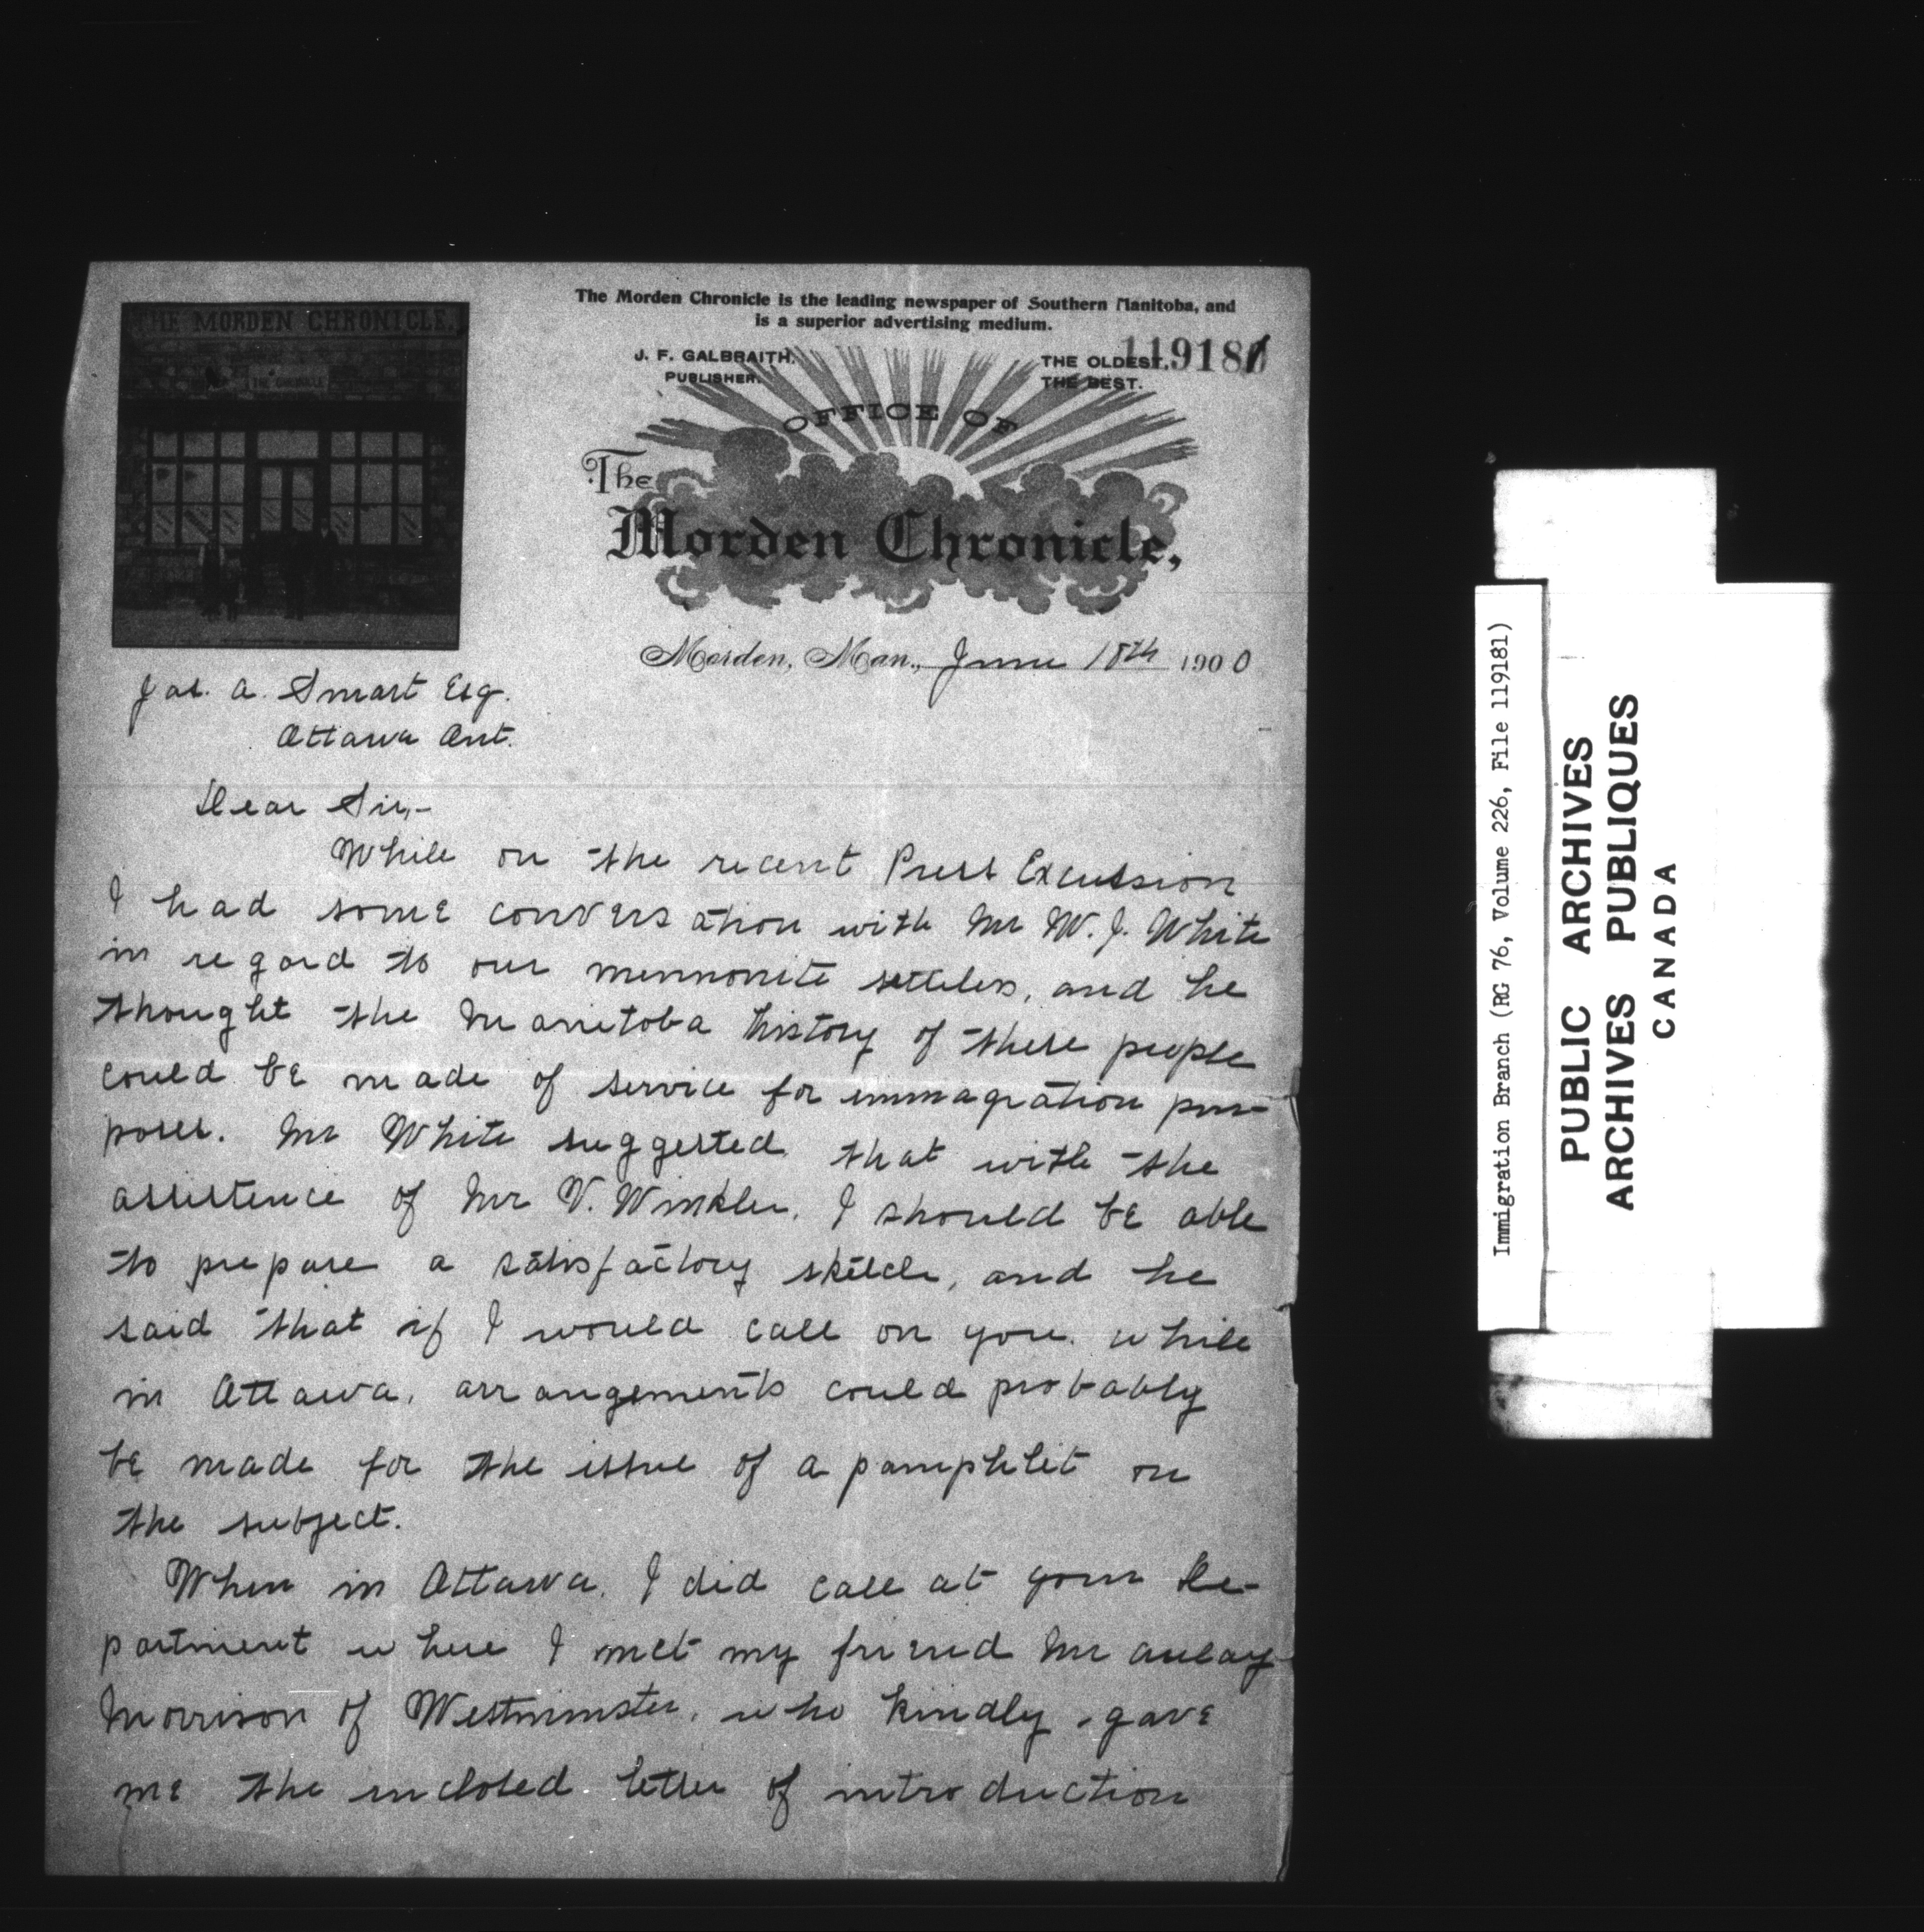 THE MORDEN CHRONICLE.
THE CHRONICLE
The Morden Chronicle is the leading newspaper of Southern Manitoba, and
is a superior advertising medium.
J. F. GALBRAITH,
PUBLISHER.
THE OLDEST.
THE BEST.
119181
OFFICE OF
The
Morden Chronicle,
Morden, Man., June 18th 1900
Jas. A. Smart Esq.
Ottawa Ont.
Dear Sir,-
While on the recent Press Excussion
I had some conversation with Mr W. J. White
in regard to our mennonite settlers, and he
thought the Manitoba history of these people
could be made of service for immagration pur-
poses. Mr White suggested that with the
assistence of Mr V. Winkler, I should be able
to prepare a satisfactory sketch, and he
said that if I would call on you while
in Ottawa, arrangements could probably
be made for the issue of a pamphlet on
the subject.
When in Ottawa, I did call at your De-
partment where I met my friend Mr Aulay
Morrison of Westminster, who kindly gave
me the inclosed letter of introduction
Immigration Branch (RG 76, Volume 226, File 119181)
PUBLIC ARCHIVES
ARCHIVES PUBLIQUES
CANADA